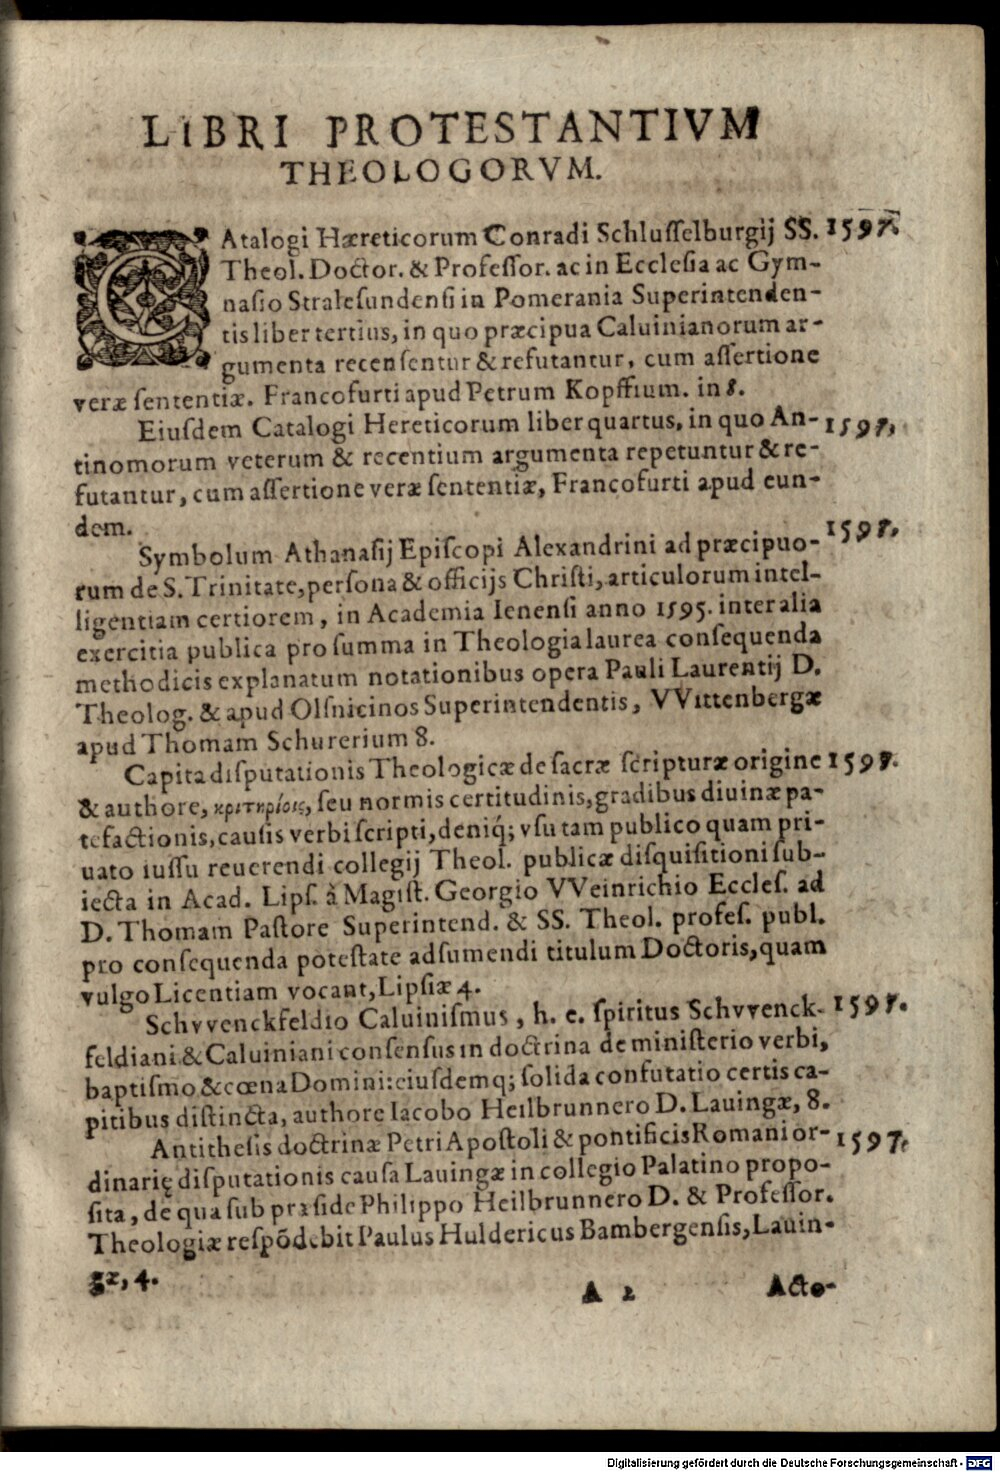 LIBRI PROTESTANTIVM
THEOLOGORVM.
CAtalogi Hæreticorum Conradi Schlusselburgij SS. 1597.
Theol. Doctor. & Professor. ac in Ecclesia ac Gym-
nasio Stralesundensi in Pomerania Superintenden-
tis liber tertius, in quo præcipua Caluinianorum ar-
gumenta recensentur & refutantur, cum assertione
veræ sententiæ. Francofurti apud Petrum Kopffium. in 8.
Eiusdem Catalogi Hereticorum liber quartus, in quo An- 1597.
tinomorum veterum & recentium argumenta repetuntur & re-
futantur, cum assertione veræ sententiæ, Francofurti apud eun-
dem.
Symbolum Athanasij Episcopi Alexandrini ad præcipuo- 1597.
rum de S. Trinitate, persona & officijs Christi, articulorum intel-
ligentiam certiorem, in Academia Ienensi anno 1595. inter alia
exercitia publica pro summa in Theologia laurea consequenda
methodicis explanatum notationibus opera Pauli Laurentij D.
Theolog. & apud Olsnicinos Superintendentis, VVittenbergæ
apud Thomam Schurerium 8.
Capita disputationis Theologicæ de sacræ scripturæ origine 1597.
& authore, κριτηρίοις, seu normis certitudinis, gradibus diuinæ pa-
tefactionis, causis verbi scripti, deniq́; vsu tam publico quam pri-
uato iussu reuerendi collegij Theol. publicæ disquisitioni sub-
iecta in Acad. Lips. à Magist. Georgio VVeinrichio Eccles. ad
D. Thomam Pastore Superintend. & SS. Theol. profes. publ.
pro consequenda potestate adsumendi titulum Doctoris, quam
vulgo Licentiam vocant, Lipsiæ 4.
Schvvenckfeldio Caluinismus, h. e. spiritus Schvvenck- 1597.
feldiani & Caluiniani consensus in doctrina de ministerio verbi,
baptismo & cœna Domini: eiusdemq; solida confutatio certis ca-
pitibus distincta, authore Iacobo Heilbrunnero D. Lauingæ, 8.
Antithesis doctrinæ Petri Apostoli & pontificis Romani or- 1597.
dinarię disputationis causa Lauingæ in collegio Palatino propo-
sita, de qua sub præside Philippo Heilbrunnero D. & Professor.
Theologiæ respõdebit Paulus Huldericus Bambergensis, Lauin-
gæ, 4.
A 2 Acto-
Digitalisierung gefördert durch die Deutsche Forschungsgemeinschaft - DFG